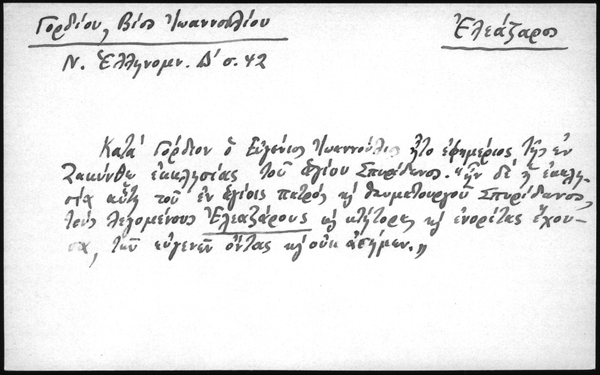 Γορδίου, Βίος Ἰωαννουλίου
Ἐλεάζαρος
Ν. Ἑλληνομν. Δ' σ. 42
Κατά Γόρδιον ὁ Εὐγένιος Ἰωαννούλιος ἦτο ἐφημέριος τῆς ἐν
Ζακύνθῳ ἐκκλησίας τοῦ ἁγίου Σπυρίδωνος. "ἦν δέ ἡ ἐκκλη-
σία αὕτη τοῦ ἐν ἁγίοις πατρός κ θαυματουργοῦ Σπυρίδωνος,
τούς λεγομένους Ἐλεαζάρους κ κτήτορας κ ἐνορίτας ἔχου-
σα, τῶν εὐγενῶν ὄντας κ οὐκ ἀσήμων."